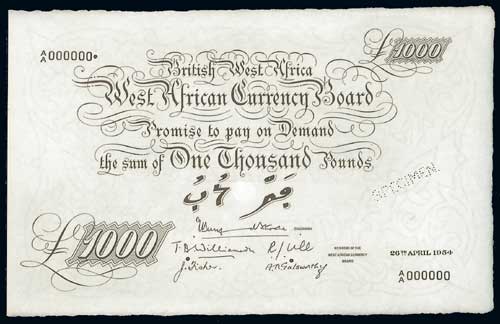 A/A 000000•
£1000
British West Africa
West African Currency Board
Promise to pay on Demand
the sum of One Thousand Pounds
SPECIMEN
CHAIRMAN
£1000
T.B. Williamson
J. Fisher
MEMBERS OF THE
WEST AFRICAN CURRENCY
BOARD
26TH APRIL 1954
A/A 000000